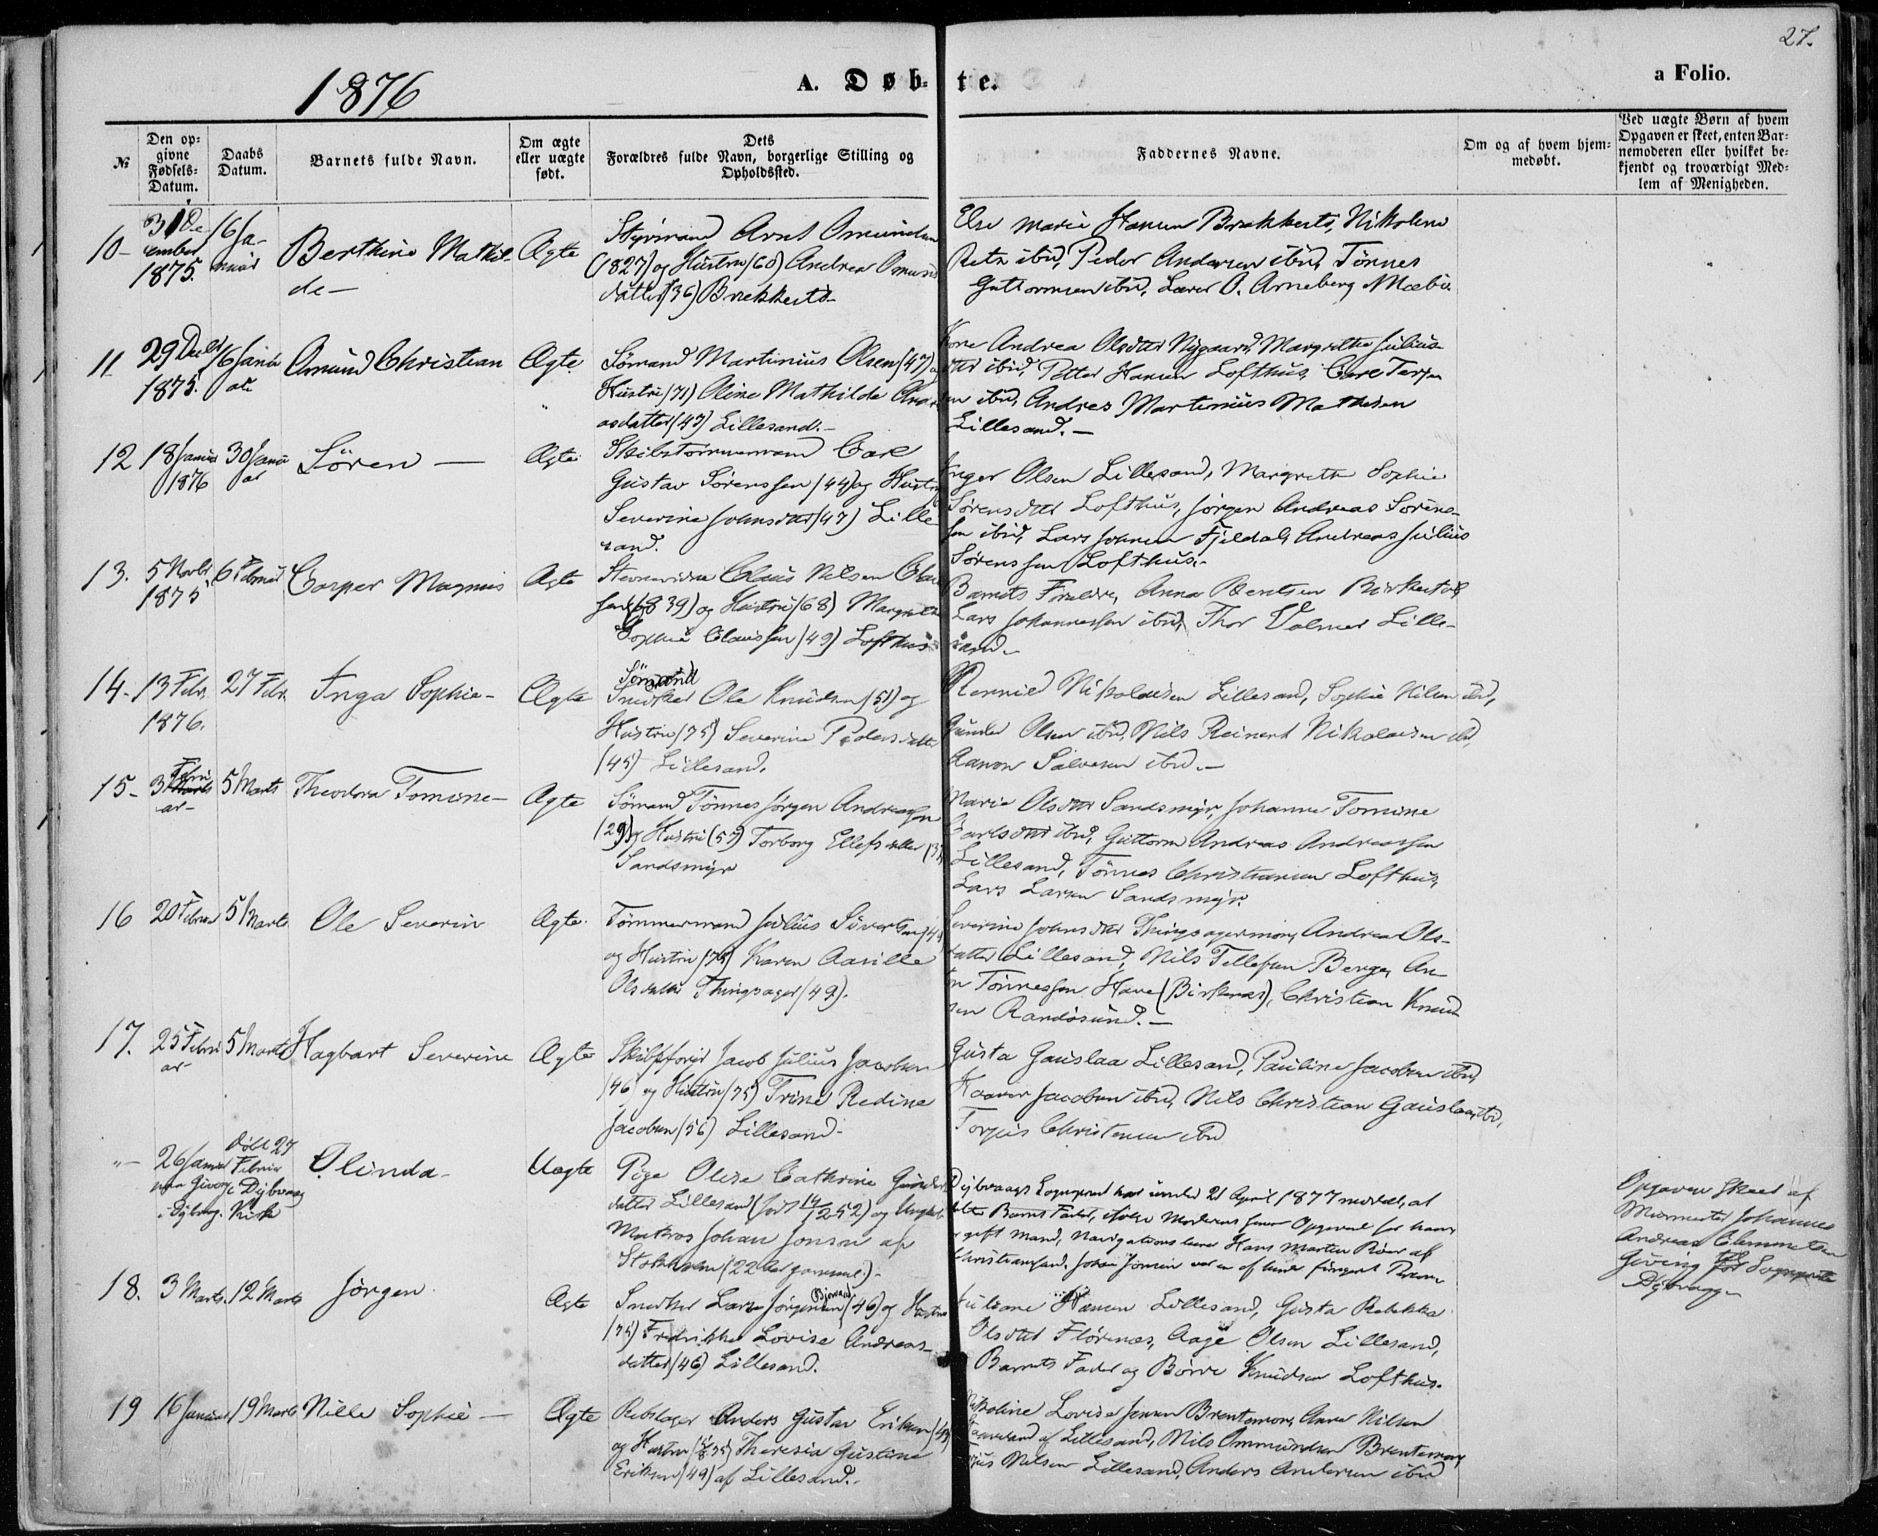 27.
1876
A. Døbte.
a Folio.
№
Den opgivne Fødsels-Datum.
Daabs Datum.
Barnets fulde Navn.
Om ægte eller uægte født.
Dets Forældres fulde Navn, borgerlige Stilling og Opholdssted.
Faddernes Navne.
Om og af hvem hjemmedøbt.
Ved uægte Børn af hvem Opgaven er skeet, enten Barnemoderen eller hvilket bekjendt og troværdigt Medlem af Menigheden.
10- 31 De
cember
1875.
16 Ja-
nuar
Berthine Mathil-
de-
Ægte
Styrmand Arnt Omundsen
(1827) og Hustru (60) Andrea Omunds
datter (36) Brækkestø-
Else Marie Hansen Brækkestø, Nikoline
ibid, Peder Andersen ibid, Tønnes
Guttormsen ibid, Lærer O. Arneberg Mæbø.
11 29 Decb
1875.
16 Janu
ar
Amund Christian
Ægte
Sømand Martinius Olsen (47) og
Hustru (71) Oline Mathilde And
asdatter (47) Lillesand.-
Kone Andrea Olsdtter Nygaard, Margrethe Julius
dtter ibid, Petter Hansen Lofthus,
ibid, Andreas Martinius Mathisen
Lillesand.-
12 18 Januar
1876
30 Janu
ar
Sören -
Ægte
Skibstømmermand Carl
Gustav Sörenssen (44) og Hustru
Severine Johnsdtter (47) Lille
sand.
Inger Olsen Lillesand, Margrethe Sophie
Sörensdtter Lofthus, Jørgen Andreas Sörens-
sen ibid, Lars Johnsen Fjeldal, Andreas Julius
Sörenssen Lofthus.-
13. 5 Novbr
1875
6 Februar
Casper Magnus
Ægte
Claus Nilsen Claus
sen (1839) og Hustru (68) Margrethe
Sophie Claussen (49) Lofthus
Barnets Forældre, Anna Berntsen
Lars Johannessen ibid, Thor Volmer Lille-
sand.-
14.- 13 Febr.
1876.
27 Febr.
Inga Sophie-
Ægte
Sømand
Snedker Ole Knudsen (51) og
Hustru (75) Severine Pedersdatter
(45) Lillesand.
Nikolaisen Lillesand, Sophie Nilsen ibid,
Gunder Olsen ibid, Nils Reinert Nikolaisen ibid,
Aanon Salvesen ibid.-
15- 3 Febru
Marts
ar-
5 Marts
Theodora Tomine-
Ægte
Sømand Tönnes Jörgen Andreassen
(29) og Hustru (57) Torborg Ellefsdatter (3
Sandsmyr
Maria Olsdtter Sandsmyr, Johanne Tomine
Carlsdtter ibid, Guttorm Andreas Andreassen
Lillesand, Tönnes Christiansen Lofthus,
Lars Larsen Sandsmyr.
16 20 Februar
5 Marts
Ole Severin
Ægte.
Tømmermand Julius Sivertsen (44
og Hustru (75) Karen Aasille
Olsdatter Thingsager (49).
Severine Johnsdtter Thingsagermoen, Andrea Ols-
datter Lillesand, Nils Tellefsen Berge, An-
Tönnessen Have (Birkenæs), Christian Knud
sen Randøsund.-
17. 25 Febru
ar-
5 Marts
Hagbart Severine
Ægte
Skibsfører Jacob Julius Jacobsen
(46) og Hustru (75) Trine Redine
Jacobsen (56) Lillesand-
Gusta Gauslaa Lillesand, Pauline Jacobsen ibid,
Haaver Jacobsen ibid, Nils Christian Gauslaa, ibid,
Torjus Christensen ibid
"- 26 Januar
paa Giving
i Dybvaag.
døbt 27
Februar
i Dybvaag
Kirke
Olinda-
Uægte
Pige Olise Cathrine Gunders
datter Lillesand (født 52) og Ungkarl
Matros Johan Jonson af
Stokholm (22 Aar gammel.)-
Dybvaags Sognepræst har under 21 April 1877 meddelt, at
dette Barns Fader, ifølge Moderens senere Opgave for ham
gift Mand, Navigationslærer Hans Martin af
Christianssand, Johan Jonson var en af hende fingeret Person
Opgaven skeet af
Murmester Johannes
Andreas Clemmetsen
Giving for Sognepr.
Dybvaag-
18. 3 Marts.
12 Marts
Jørgen.
Ægte
Snedker Lars Jörgensen (46) og Hustru
(75) Fredrikke Lovise Andreas-
datter (46) Lillesand.
Juliane Hansen Lillesand, Gusta Rebekka
Olsdtter Flörenæs, Aage Olsen Lillesand,
Barnets Fader og Börre Knudsen Lofthus.
19 16 Januar
19 Marts
Nille Sophie-
Ægte
Rebslager Anders Gustav Eriksen (49)
og Hustru (75) Theresia Gustine
Eriksen (49) af Lillesand.-
Nikoline Lovise Jensen Brentemoen, Anne Nilsen
af Lillesand, Nils Ommundsen Brentemoen,
Nilsen Lillesand, Anders Andersen ibid